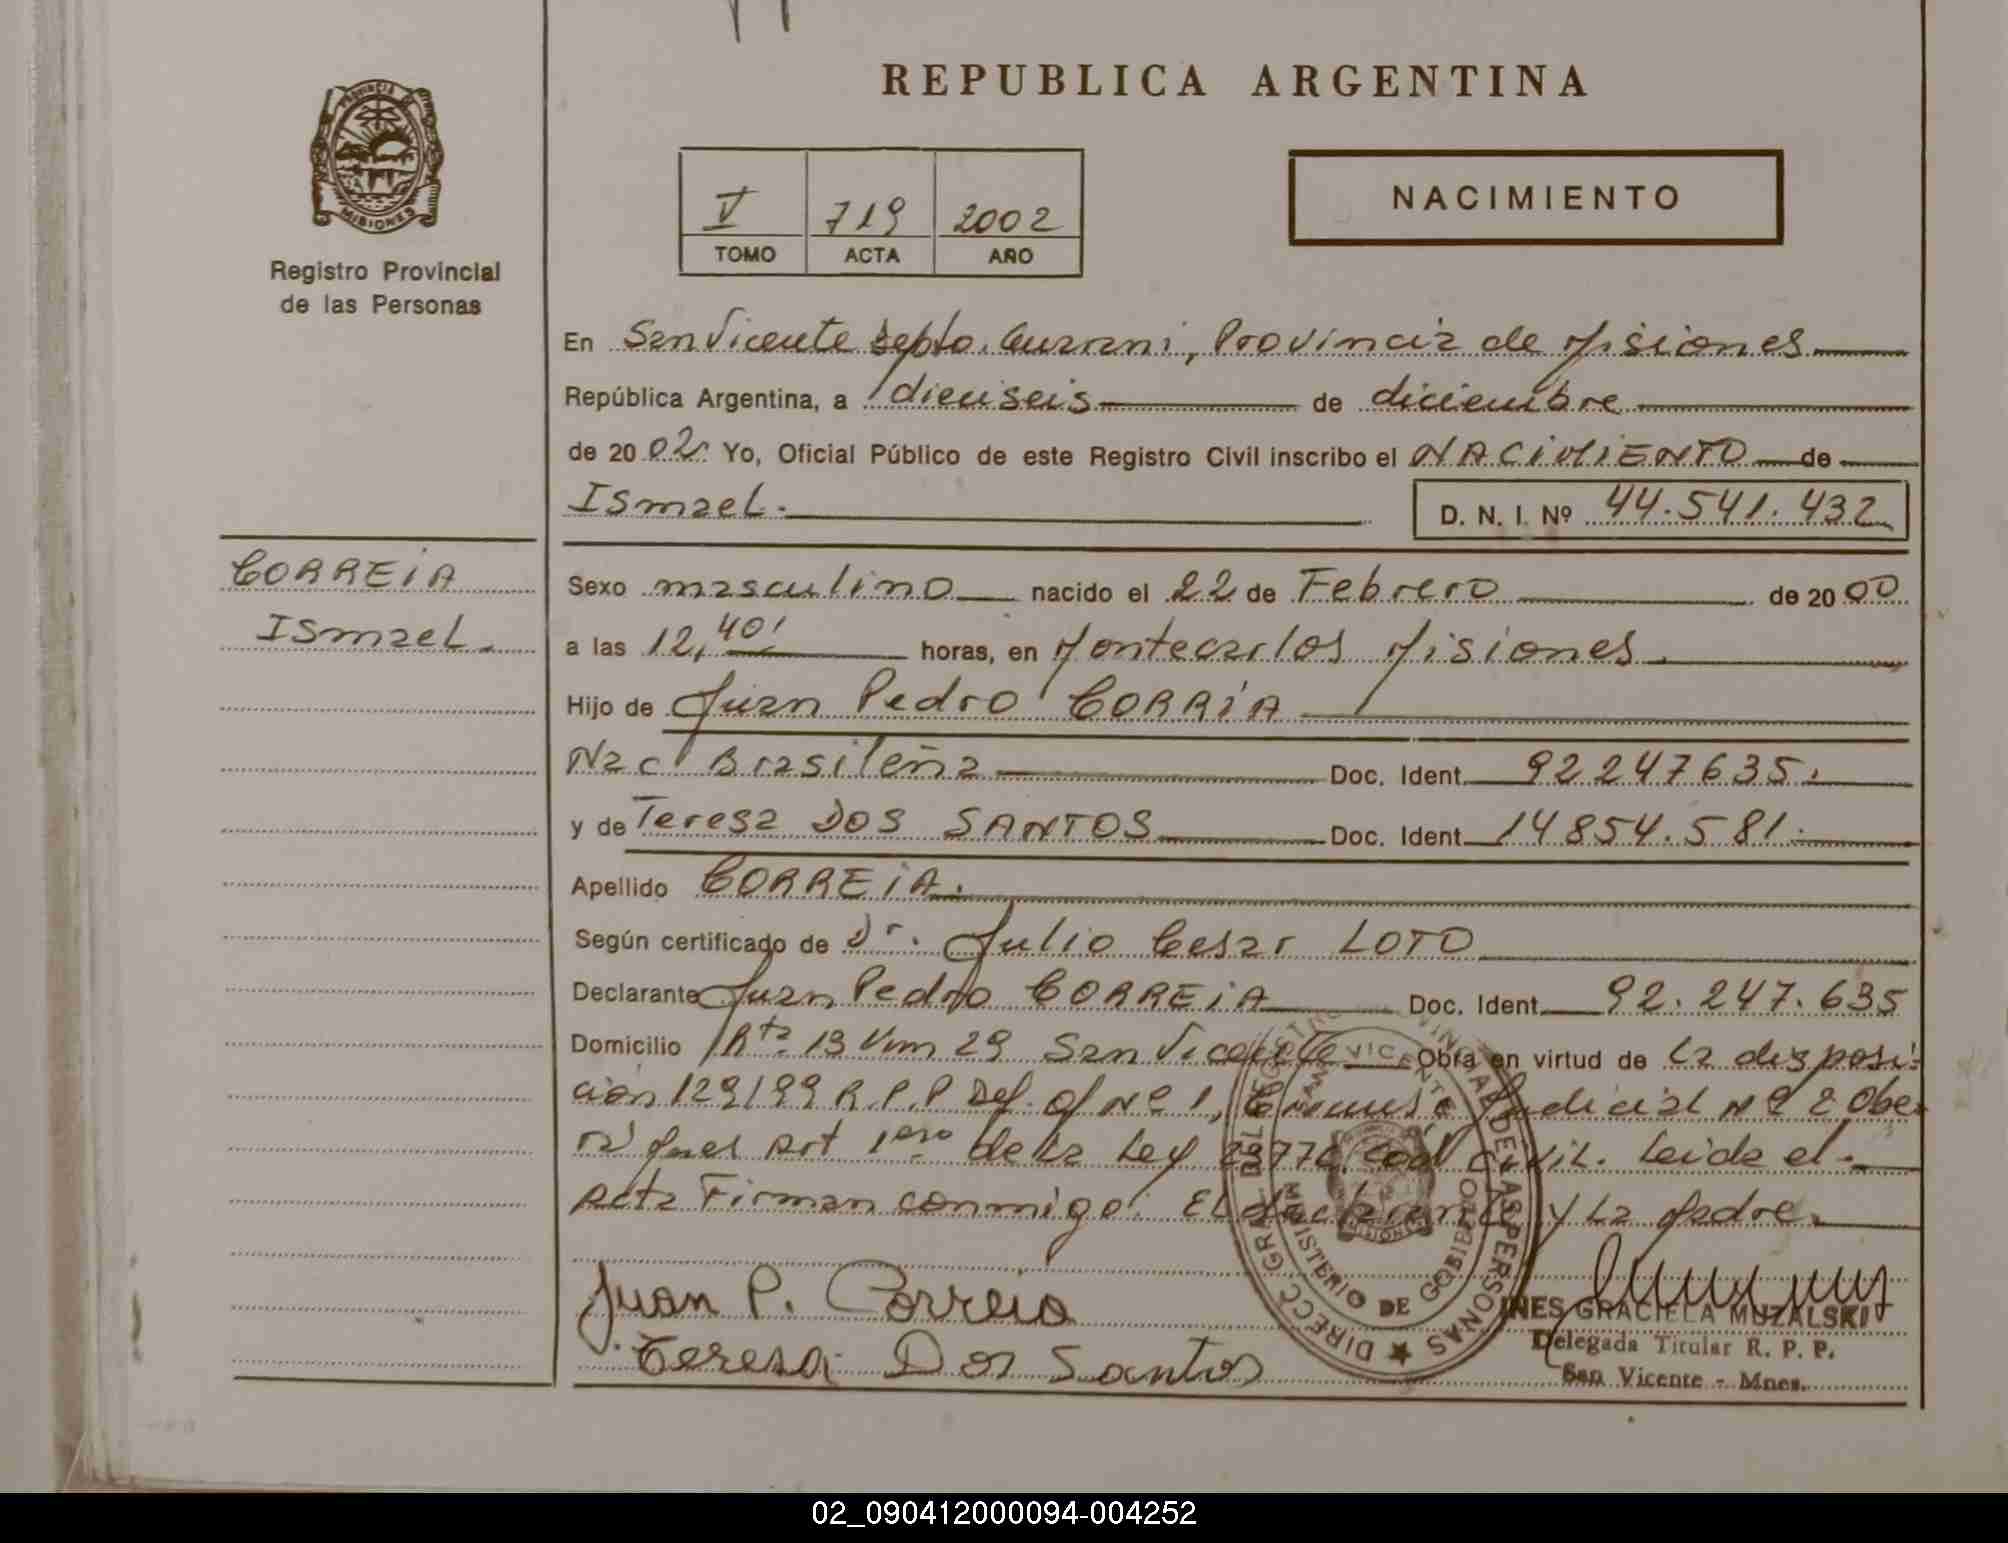 REPUBLICA ARGENTINA
PROVINCIA DE
MISIONES
Registro Provincial
de las Personas
V 719 2002
TOMO ACTA AÑO
NACIMIENTO
En San Vicente Depto. Guarani, Provincia de Misiones
República Argentina, a dieciseis de diciembre
de 2002 Yo, Oficial Público de este Registro Civil inscribo el NACIMIENTO de
Ismael. D. N. I. Nº 44.541.432
CORREIA
Ismael.
Sexo masculino nacido el 22 de Febrero de 2000
a las 12,40' horas, en Montecarlos Misiones.
Hijo de Juan Pedro CORRIA
Nac Brasileña Doc. Ident. 92247635.
y de Teresa DOS SANTOS Doc. Ident. 14854.581.
Apellido CORREIA.
Según certificado de Dr. Julio Cesar LOTO
Declarante Juan Pedro CORREIA Doc. Ident. 92.247.635
Domicilio Rta 13 Km 29 San Vicente Obra en virtud de la disposi-
ción 129/99 R.P.P Def. Of Nº 1, Judicial Nº 2 Obe-
rá art 1ero de la Ley Civil. Leida el
acta Firman conmigo: El declarante y La Madre.
Juan P. Correia
Teresa Dos Santos
DIRECC. GRAL. DEL REGISTRO PROVINCIAL DE LAS PERSONAS
MINISTERIO DE GOBIERNO
INES GRACIELA MUZALSKI
Delegada Titular R. P. P.
San Vicente - Mnes.
02_090412000094-004252